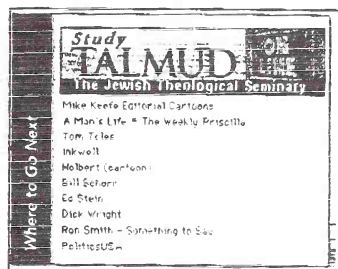 Study
TALMUD
The Jewish Theological Seminary
Mike Keefe Editorial Cartoons
A Man's Life * The Weekly Priscilla
Tom Toles
Inkwell
Holbert (cartoon)
Bill Schorr
Ed Stein
Dick Wright
Ron Smith - Something to Say
PoliticsUSA
Where to Go Next